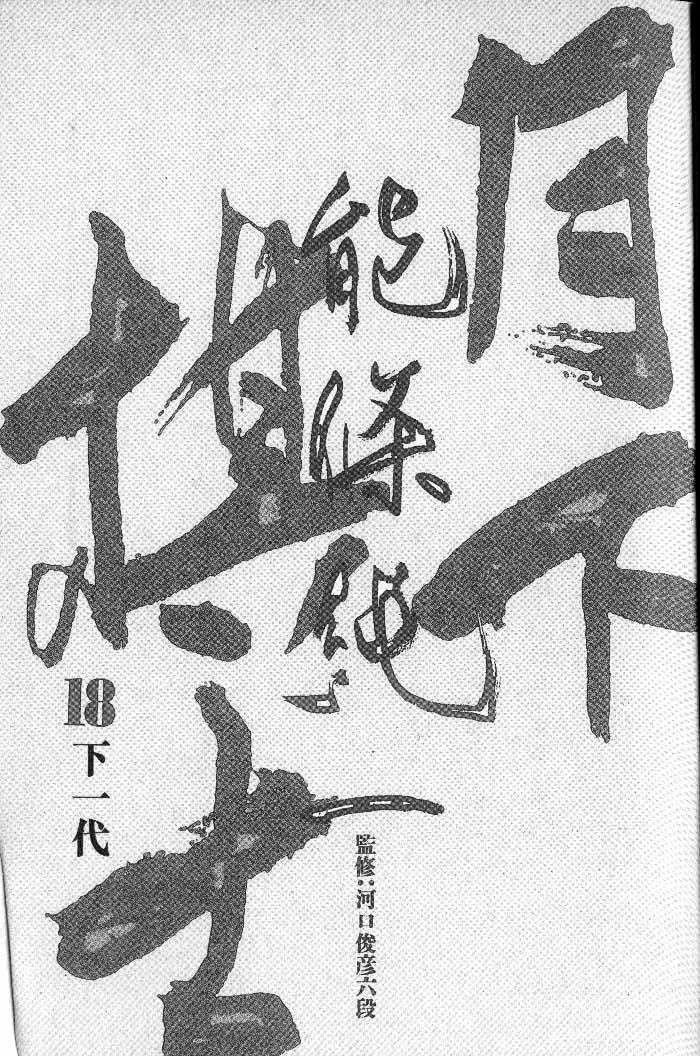 月下棋士
能條純一
18
下一代
監修：河口俊彦六段